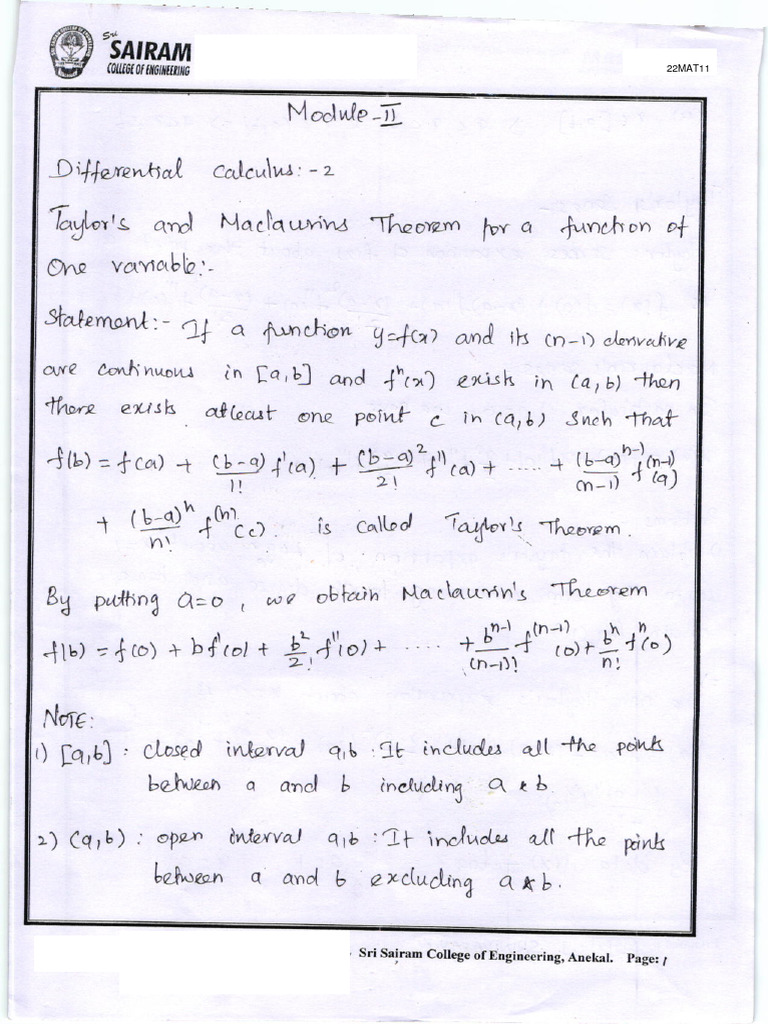 Sri
SAIRAM
COLLEGE OF ENGINEERING
22MAT11
Module-II
Differential Calculus:-2
Taylor's and Maclaurins Theorem for a function of
One variable:-
Statement:- If a function y=f(x) and its (n-1) derivative
are continuous in [a,b] and fⁿ(x) exists in (a,b) then
there exists atleast one point c in (a,b) Such that
f(b) = f(a) + (b-a)/1! f'(a) + (b-a)²/2! f''(a) + ...... + (b-a)ⁿ⁻¹/(n-1)! f⁽ⁿ⁻¹⁾(a)
+ (b-a)ⁿ/n! f⁽ⁿ⁾(c). is called Taylor's Theorem.
By putting a=0, we obtain Maclaurin's Theorem
f(b) = f(0) + bf'(0) + b²/2! f''(0) + ...... + bⁿ⁻¹/(n-1)! f⁽ⁿ⁻¹⁾(0) + bⁿ/n! fⁿ(0)
NOTE:
1) [a,b] : closed interval a,b : It includes all the points
between a and b including a & b
2) (a,b) : open interval a,b : It includes all the points
between a and b excluding a & b.
Sri Sairam College of Engineering, Anekal. Page: 1